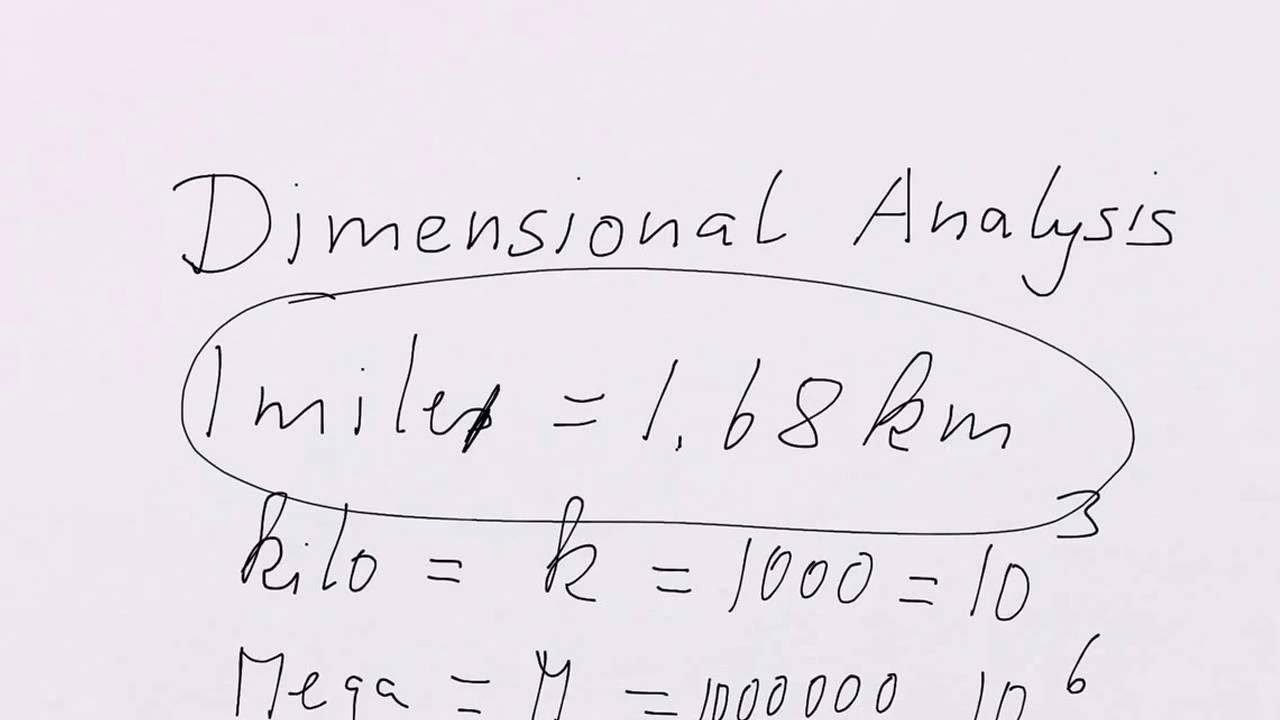 Dimensional Analysis
1 mile = 1.68 km
kilo = k = 1000 = 10³
Mega = M = 1000000 10⁶